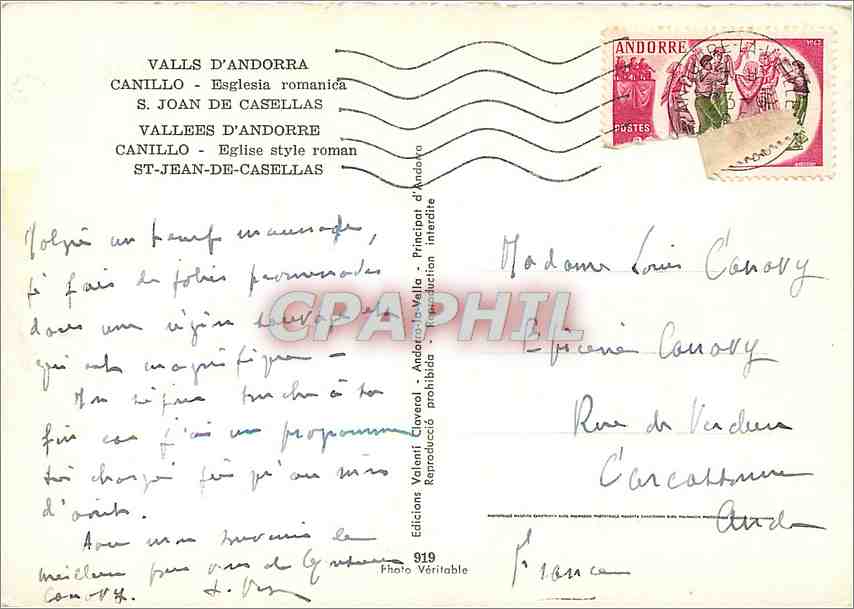 VALLS D'ANDORRA
CANILLO - Esglesia romanica
S. JOAN DE CASELLAS
VALLEES D'ANDORRE
CANILLO - Eglise style roman
ST-JEAN-DE-CASELLAS
ANDORRE
POSTES
ANDORRE-LA-VIEILLE
Malgré un temps maussade,
je fais de jolies promenades
dans une région sauvage et
qui est magnifique -
Mon séjour touche à sa
fin car j'ai un programme
très chargé jusqu'au mois
d'août.
Avec mon souvenir le
meilleur pour vous
Canovy.
Edicions Valentí Claverol - Andorra-la-Vella - Principat d'Andorra
Reproducció prohibida - Reproduction interdite
919
Photo Véritable
CPAPHIL
Madame Louis Canovy
Epicerie Canovy
Rue de Verdun
Carcassonne
Aude
France